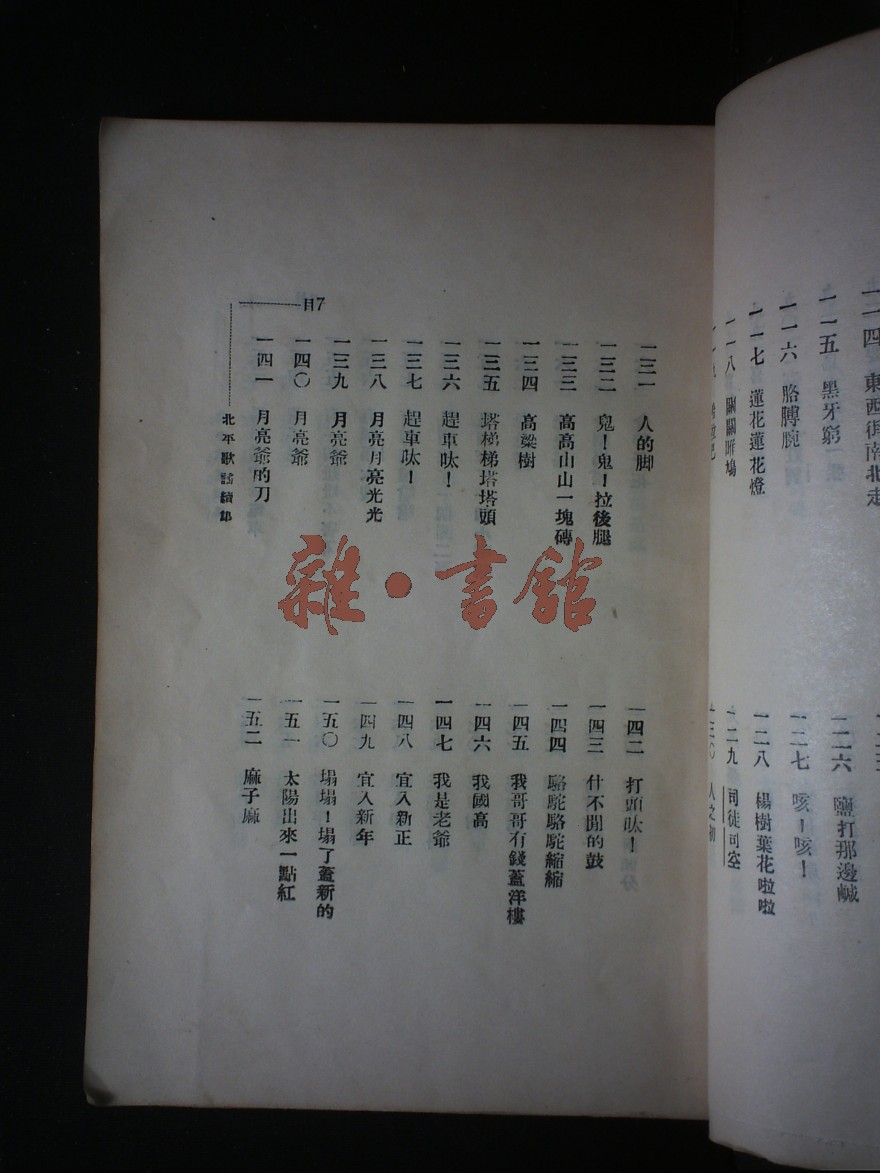 一二四 東西街南北走
一一五 黑牙窮
一一六 胳膊腕
一一七 蓮花蓮花燈
一一八
一二六 鹽打那邊鹹
一二七 咳！咳！
一二八 楊樹葉花啦啦
一二九 司徒司空
一三〇 人之初
一三一 人的脚
一三二 鬼！鬼！拉後腿
一三三 高高山山一塊磚
一三四 高粱樹
一三五 塔梯梯塔塔頭
一三六 趕車呔！
一三七 趕車呔！
一三八 月亮月亮光光
一三九 月亮爺
一四〇 月亮爺
一四一 月亮爺的刀
一四二 打頭呔！
一四三 什不閒的鼓
一四四 駱駝駱駝縮縮
一四五 我哥哥有錢蓋洋樓
一四六 我國高
一四七 我是老爺
一四八 宜入新正
一四九 宜入新年
一五〇 塌塌！塌了蓋新的
一五一 太陽出來一點紅
一五二 麻子麻
目7
北平歌謠續集
雜·書館